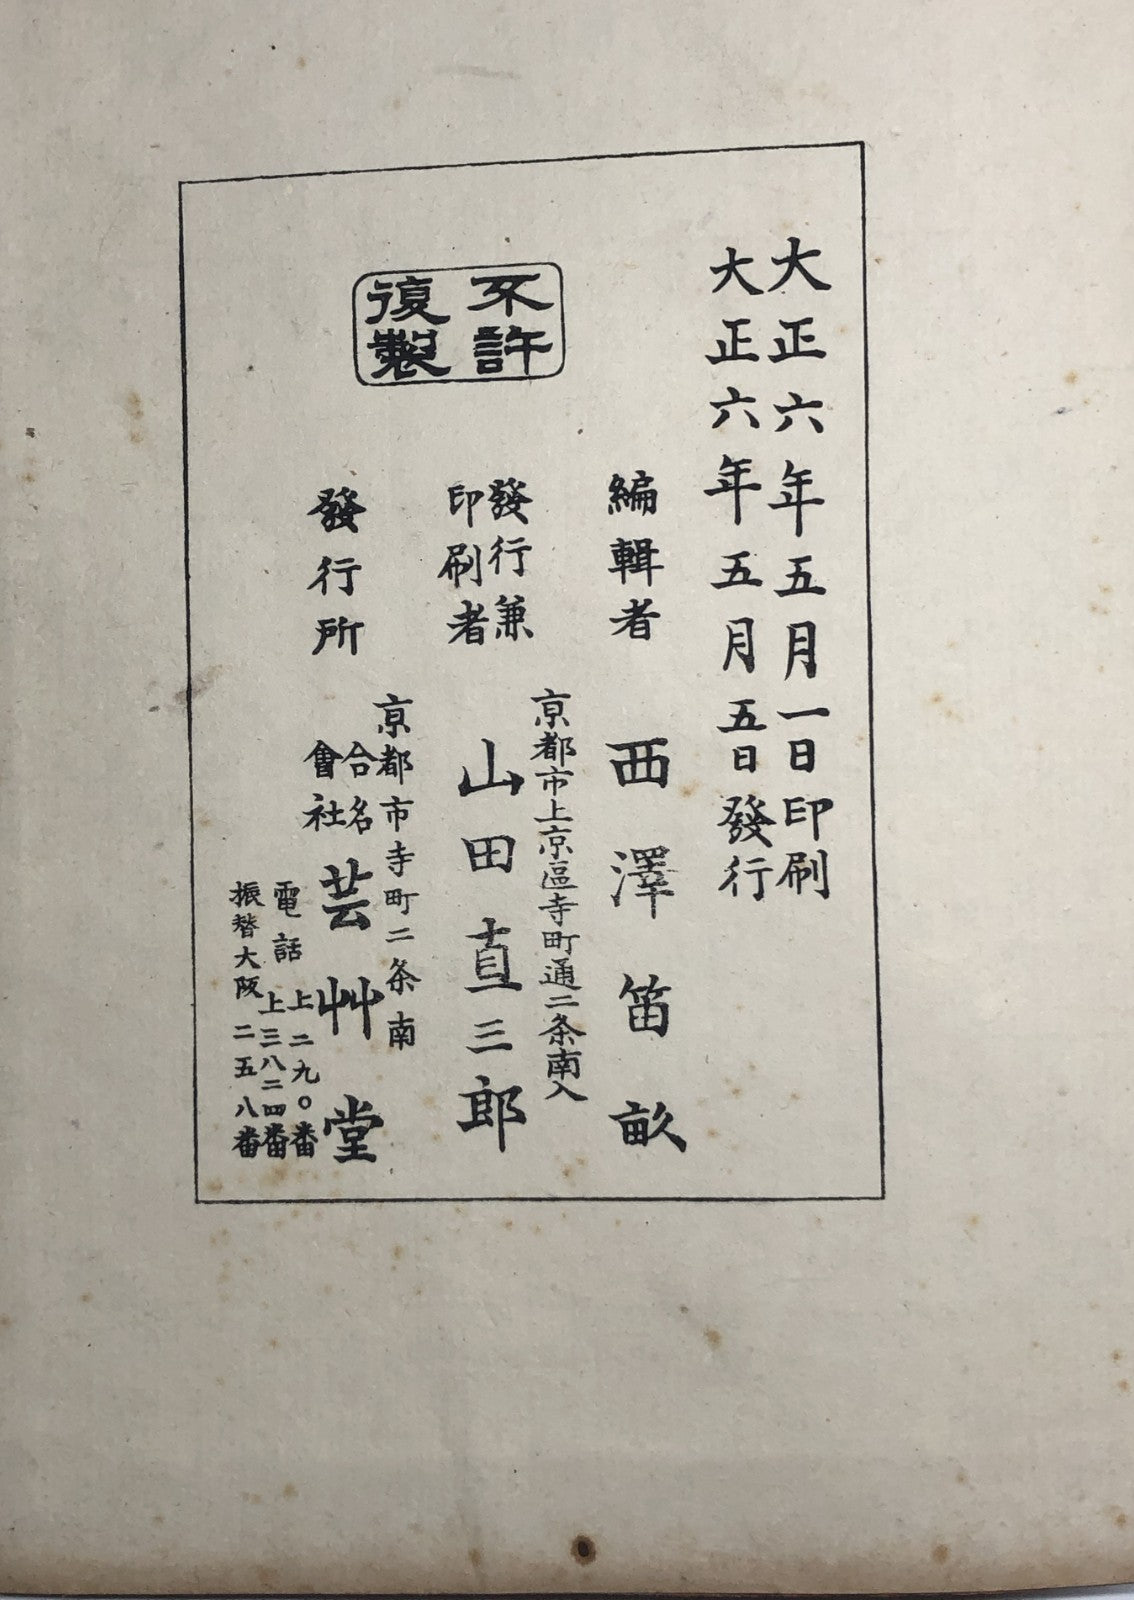 大正六年五月一日印刷
大正六年五月五日發行
不許
復製
編輯者 西澤笛畝
京都市上京區寺町通二条南入
發行兼
印刷者 山田直三郎
京都市寺町二条南
發行所 合名會社 芸艸堂
電話 上二九〇番
上三八二四番
振替大阪二五八番